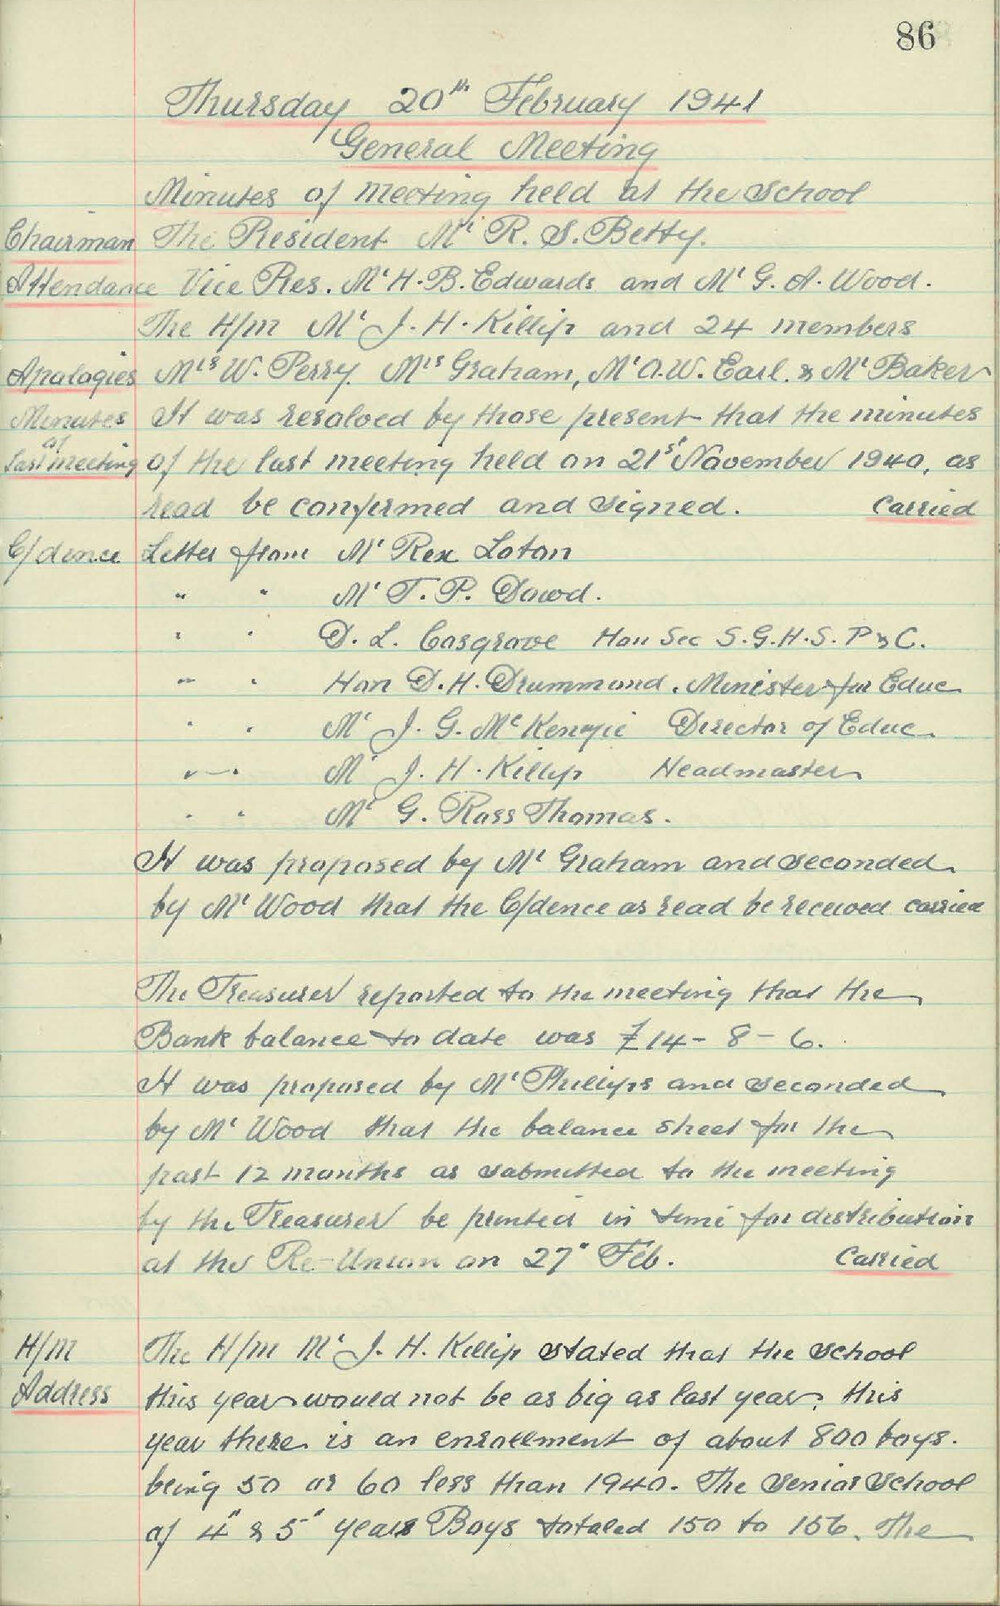 86
Thursday 20th February 1941
General Meeting
Minutes of meeting held at the School
Chairman The President Mr R. S. Betty.
Attendance Vice Pres. Mr H. B. Edwards and Mr G. A. Wood.
The H/m Mr J. H. Killip and 24 members
Apologies Mrs W. Perry. Mrs Graham, Mr O. W. Earl. & Mr Baker
Minutes It was resolved by those present that the minutes
of
Last meeting of the last meeting held on 21st November 1940, as
read be confirmed and signed. Carried
C/dence Letter from Mr Rex Loton
" " Mr T. P. Dowd.
" " D. L. Cosgrove Hon Sec S.G.H.S. P & C.
" " Hon D. H. Drummond. Minister for Educ
" " Mr J. G. McKenzie Director of Educ.
" " Mr J. H. Killip Headmaster
" " Mr G. Ross Thomas.
It was proposed by Mr Graham and seconded
by Mr Wood that the C/dence as read be received carried
The Treasurer reported to the meeting that the
Bank balance to date was £14 - 8 - 6.
It was proposed by Mr Phillips and seconded
by Mr Wood that the balance sheet for the
past 12 months as submitted to the meeting
by the Treasurer be printed in time for distribution
at the Re-Union on 27" Feb. Carried
H/m The H/m Mr J. H. Killip stated that the school
Address this year would not be as big as last year; this
year there is an enrollment of about 800 boys.
being 50 or 60 less than 1940. The Senior School
of 4" & 5" years Boys totaled 150 to 156. The